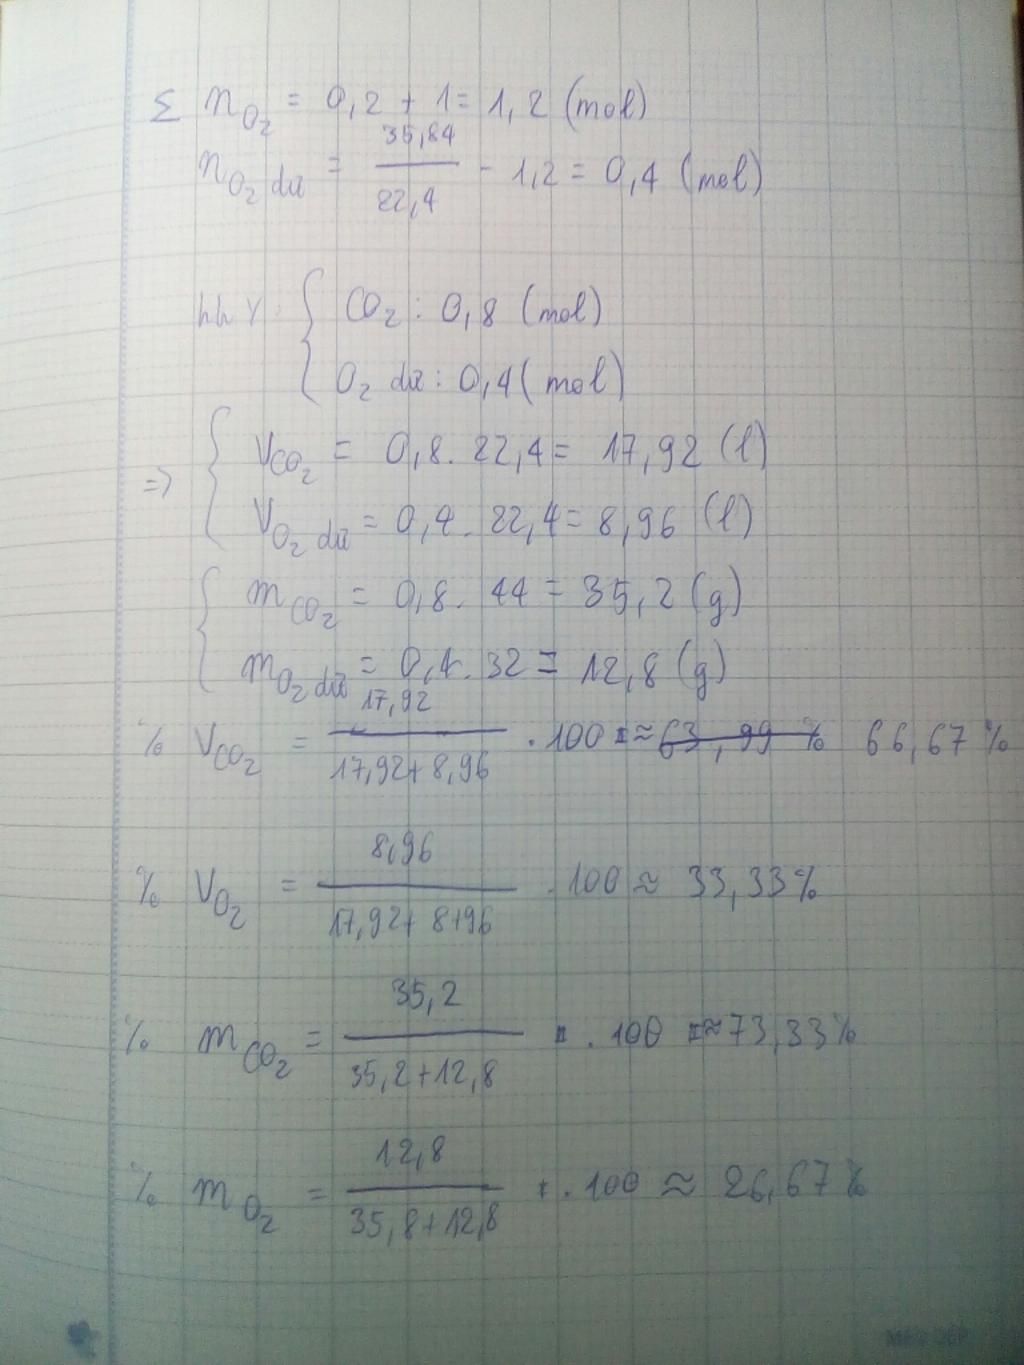 Σ nO₂ = 0,2 + 1 = 1,2 (mol)
nO₂ dư = 35,84/22,4 - 1,2 = 0,4 (mol)
hh Y : { CO₂ : 0,8 (mol)
O₂ dư : 0,4 (mol)
=> { VCO₂ = 0,8 . 22,4 = 17,92 (l)
VO₂ dư = 0,4 . 22,4 = 8,96 (l)
{ mCO₂ = 0,8 . 44 = 35,2 (g)
mO₂ dư = 0,4 . 32 = 12,8 (g)
% VCO₂ = 17,92/17,92+8,96 . 100 ≈ 63,99 % 66,67 %
% VO₂ = 8,96/17,92+8+96 . 100 ≈ 33,33%
% mCO₂ = 35,2/35,2+12,8 . 100 ≈ 73,33%
% mO₂ = 12,8/35,8+12,8 . 100 ≈ 26,67%